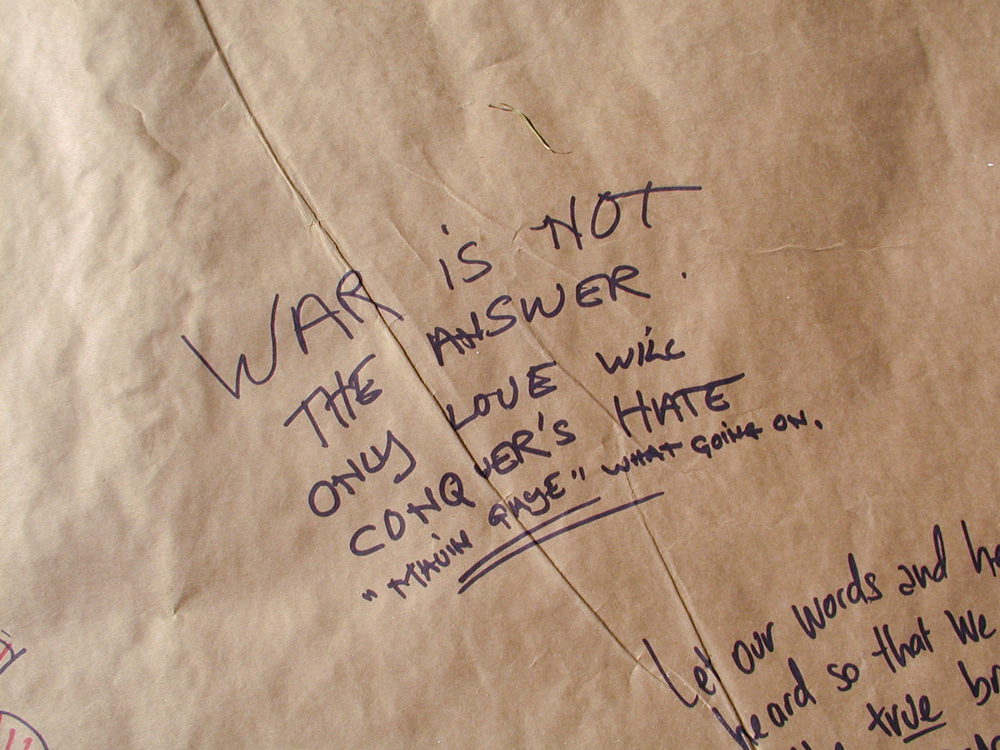 WAR iS NOT
THE ANSWER.
ONLY LOVE WiLL
CONQUER'S HATE
"MAViN GAYE" WHAT GOiNG ON.
Let our words and
heard so that We
true